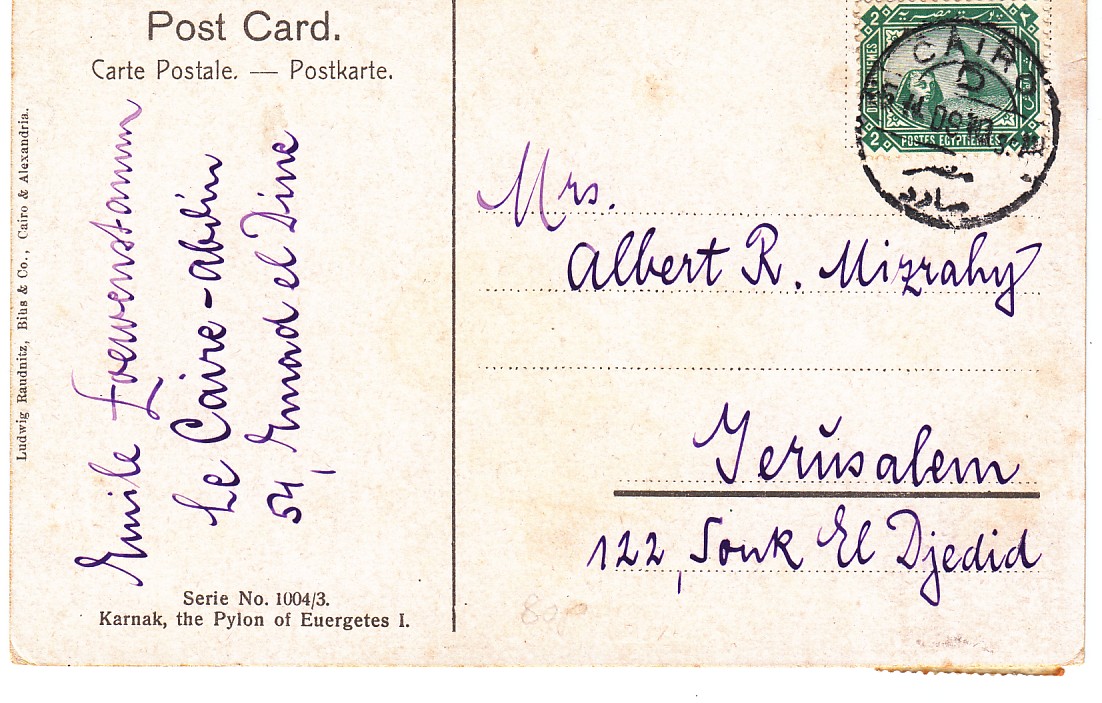 Post Card.
Carte Postale. — Postkarte.
Ludwig Raudnitz, Bihs & Co., Cairo & Alexandria.
Emile Loewenstamm
Le Caire-abdin
54, Emad el Dine
Serie No. 1004/3.
Karnak, the Pylon of Euergetes I.
2 2
2
POSTES EGYPTIENNES
CAIRO
D
Mrs.
Albert R. Mizrahy
Jerŭsalem
122, Souk El Djedid